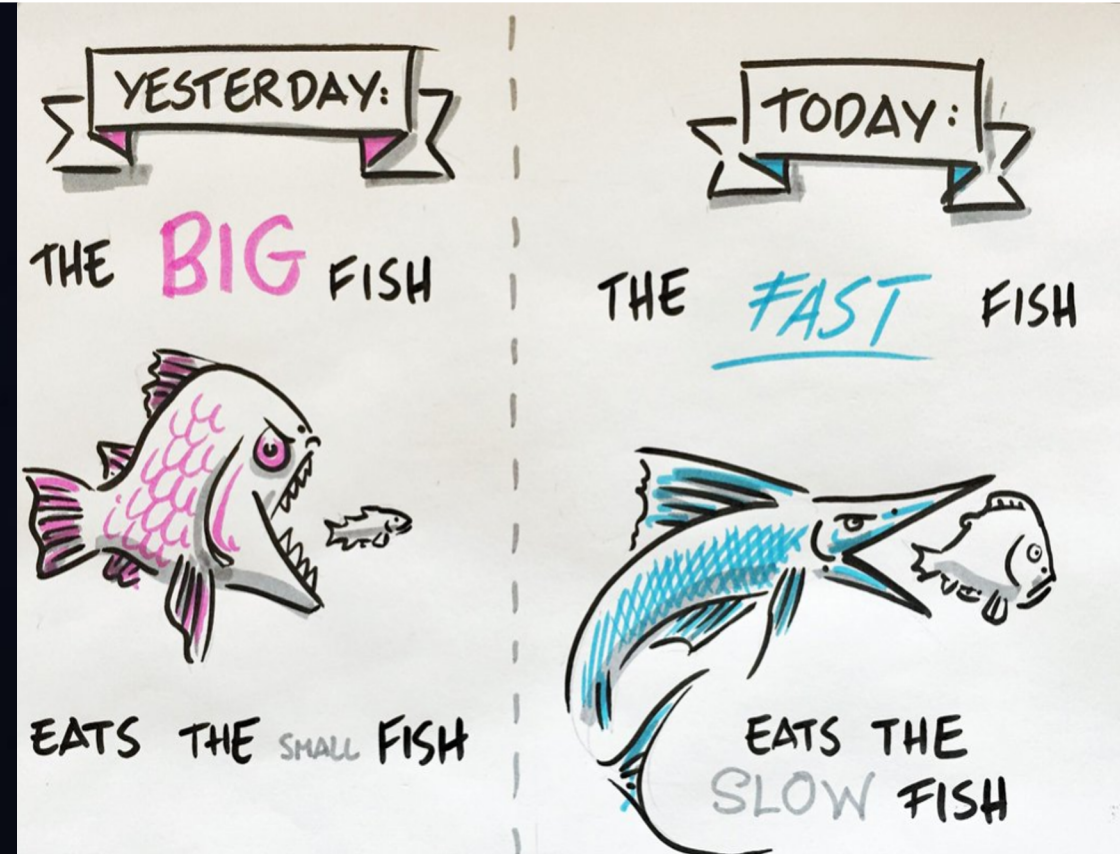 YESTERDAY:
THE BIG FISH
EATS THE SMALL FISH
TODAY:
THE FAST FISH
EATS THE
SLOW FISH